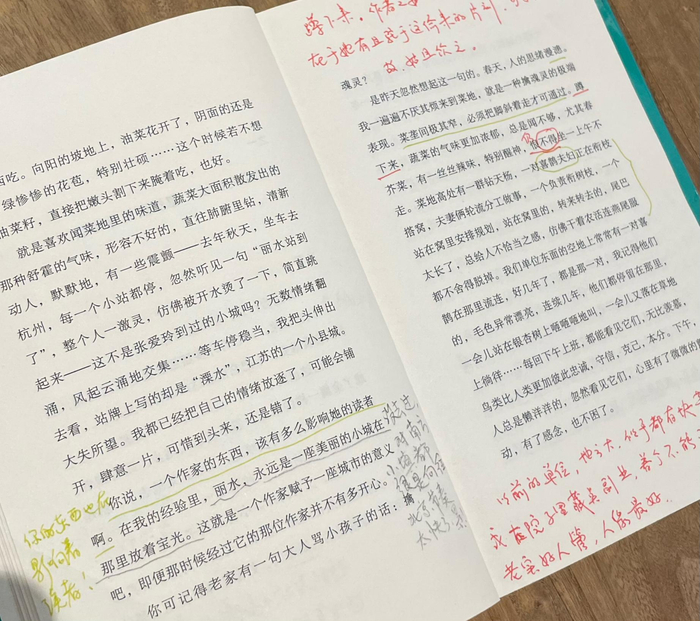 西吃。向阳的坡地上，油菜花开了，阴面的还是
绿惨惨的花苞，特别壮硕……这个时候若不想
油菜籽，直接把嫩头割下来腌着吃，也好。
就是喜欢闻菜地里的味道，蔬菜大面积散发出的
那种舒霍的气味，形容不好的，直往肺腑里钻，清新
动人，默默地，有一些震颤——去年秋天，坐车去
杭州，每一个小站都停，忽然听见一句“丽水站到
了”，整个人一激灵，仿佛被开水烫了一下，简直跳
起来——这不是张爱玲到过的小城吗？无数情绪翻
涌，风起云涌地交集……等车停稳当，我把头伸出
去看，站牌上写的却是“溧水”，江苏的一个小县城。
大失所望。我都已经把自己的情绪放逐了，可能会铺
开，肆意一片，可惜到头来，还是错了。
你说，一个作家的东西，该有多么影响她的读者
啊。在我的经验里，丽水，永远是一座美丽的小城在
那里放着宝光。这就是一个作家赋予一座城市的意义
吧，即便那时候经过它的那位作家并不有多开心。
你可记得老家有一句大人骂小孩子的话：摘
你的东西也在
影响着
读者！
蹲下来，作者之
在于她有且孜于这停来的片刻，
魂灵？
是昨天忽然想起这一句的。春天，人的思绪漫漶。
我一遍遍不厌其烦来到菜地，就是一种擒魂灵的极端
表现。菜垄间极其窄，必须把脚斜着走才可通过。蹲
下来，蔬菜的气味更加浓郁，总是闻不够，尤其春
芥菜，有一丝丝辣味，特别醒神，恨不得坐一上午不
走。菜地高处有一群钻天杨，一对喜鹊夫妇正在衔枝
搭窝，夫妻俩轮流分工做事，一个负责衔树枝，一个
站在窝里安排规划，站在窝里的，转来转去的，尾巴
太长了，总给人不恰当之感，仿佛干着农活连燕尾服
都不舍得脱掉。我们单位东面的空地上常常有一对喜
鹊在那里流连，好几年了，都是那一对，我记得他们
的，毛色异常漂亮，连续几年，他们都停留在那里，
一会儿站在银杏树上咂咂咂地叫，一会儿又落在草地
上徜徉……每回下午上班，都能看见它们，无比羡慕，
鸟类比人类更加彼此忠诚，守信，克己，本分。下午
人总是懒洋洋的，忽然看见它们，心里有了微微的
动，有了感念，也不困了。
以前的单位，
老实好人管，人缘最好